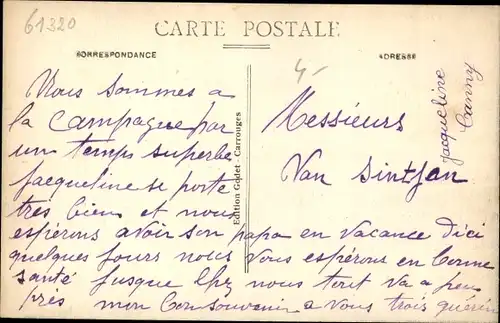 61320
CARTE POSTALE
CORRESPONDANCE
ADRESSE
4-
Nous sommes a
la Campagne par
un temps superbe
Jacqueline se porte
tres bien et nous
espérons avoir son papa en vacance d'ici
quelques jours nous vous espérons en bonne
santé jusque chez nous tout va a peu
pres mon bon souvenir a vous trois
Edition Godet - Carrouges
Messieurs
Van Sintjan
Jacqueline
Canny